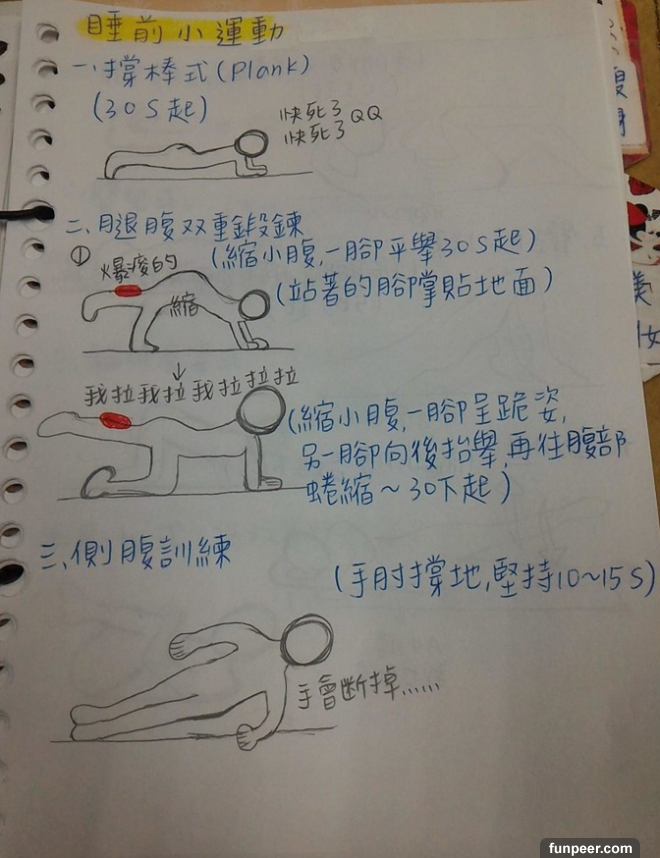 睡前小運動
一、撐棒式(Plank)
(30S起)
快死了QQ
快死了
二、腿腹双重鍛鍊
① 爆痠的
(縮小腹,一腳平舉30S起)
(站著的腳掌貼地面)
縮
↓
我拉我拉我拉拉拉
(縮小腹,一腳呈跪姿,
另一腳向後抬舉,再往腹部
蜷縮~30下起)
三、側腹訓練
(手肘撐地,堅持10~15S)
手會断掉......
funpeer.com